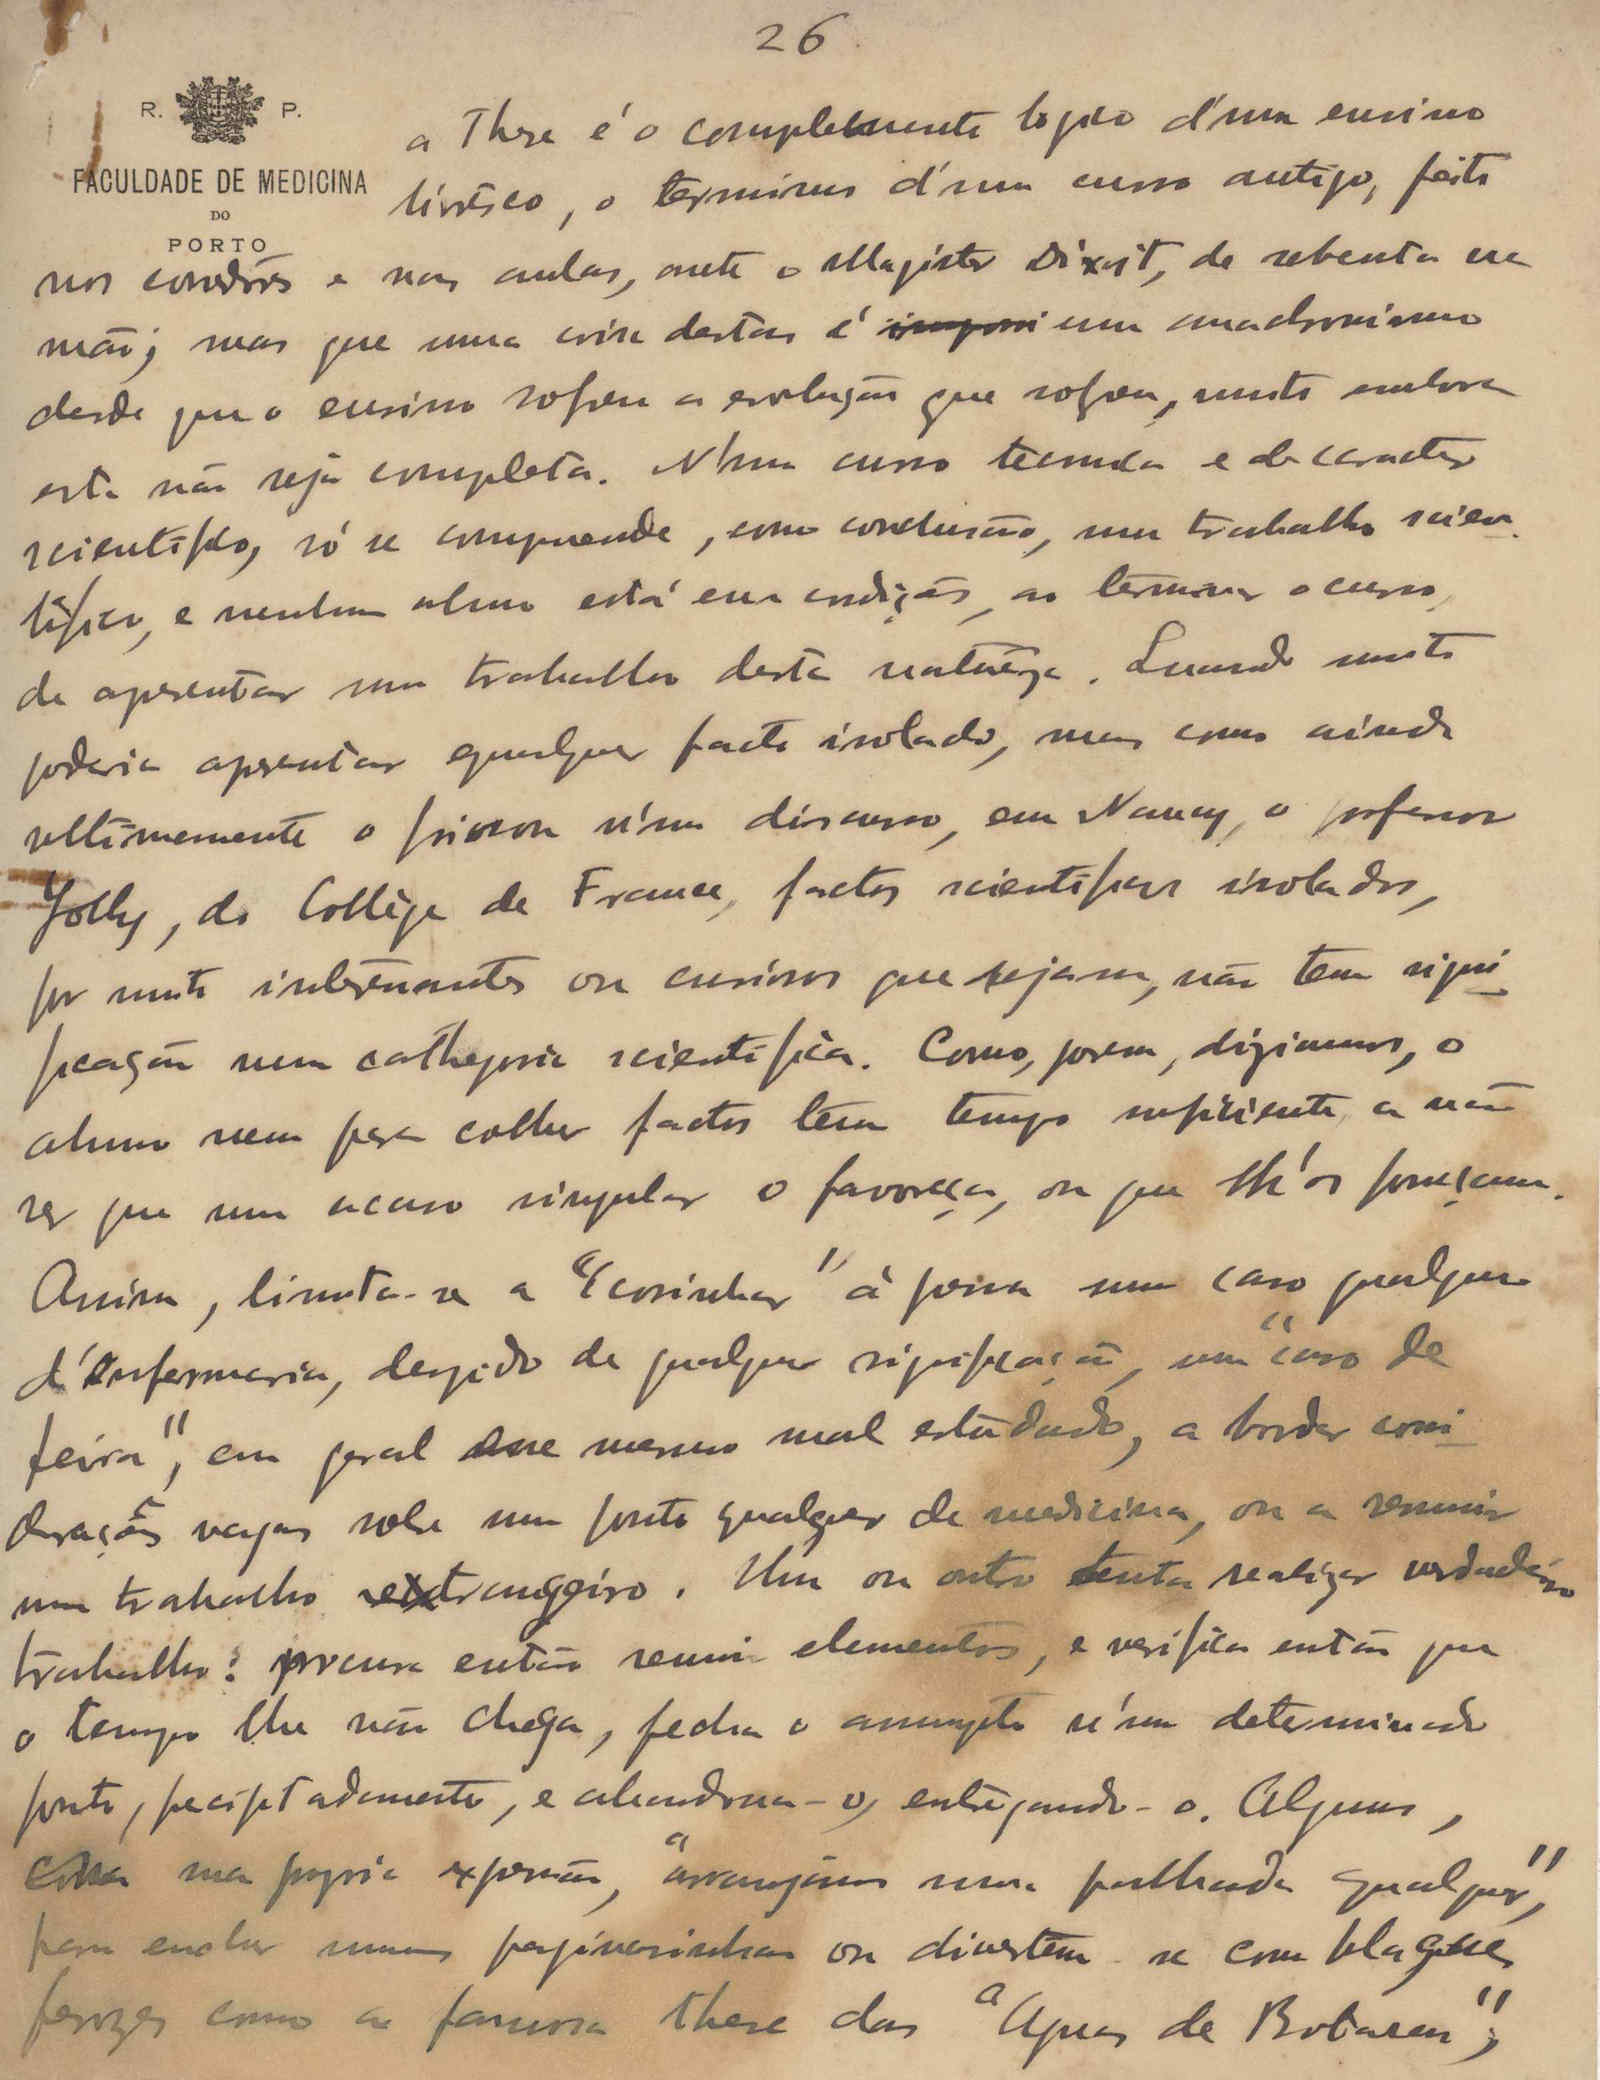 26
R. P.
FACULDADE DE MEDICINA
DO
PORTO
a These é o complemento logico d'um ensino
livrêsco, o terminus d'um curso antigo, feito
nos corredôres e nas aulas, ante o Magister Dixit, de sebenta na
mão; mas que uma coisa destas é um anachronismo
desde que o ensino sofreu a evolução que sofreu, muito embora
esta não seja completa. N'um curso technico e de caracter
scientifico, só se comprehende, como conclusão, um trabalho scien-
tifico, e nenhum aluno está em condições, ao terminar o curso,
de apresentar um trabalho desta naturêza. Quando muito
poderia apresentar qualquer facto isolado, mas como ainda
ultimamente o frisou n'um discurso, em Nancy, o professor
Jolly, do Collège de France, factos scientificos isolados,
por muito interessantes ou curiosos que sejam, não tem signi-
ficação nem cathegoria scientifica. Como, porem, diziamos, o
aluno nem para colher factos têm tempo suficiente, a não
ser que um acaso singular o favoreça, ou que lh'os forneçam.
Assim, limita-se a "cosinhar" à pressa um caso qualquer
d'enfermaria, despido de qualquer significação, um "caso de
feira", em geral esse mesmo mal estudado, a bordar consi-
derações vagas sobre um ponto qualquer de medicina, ou a resumir
um trabalho extrangeiro. Um ou outro tenta realizar verdadeiro
trabalho: procura então reunir elementos, e verifica então que
o tempo lhe não chega, fecha o assumpto n'um determinado
ponto, precipitadamente, e abandona-o, entregando-o. Alguns,
na propria expressão, "arranjam uma palhada qualquer",
para encher umas paginasinhas ou divertem-se com blagues
ferozes como a famosa these das "Aguas de Botaren";